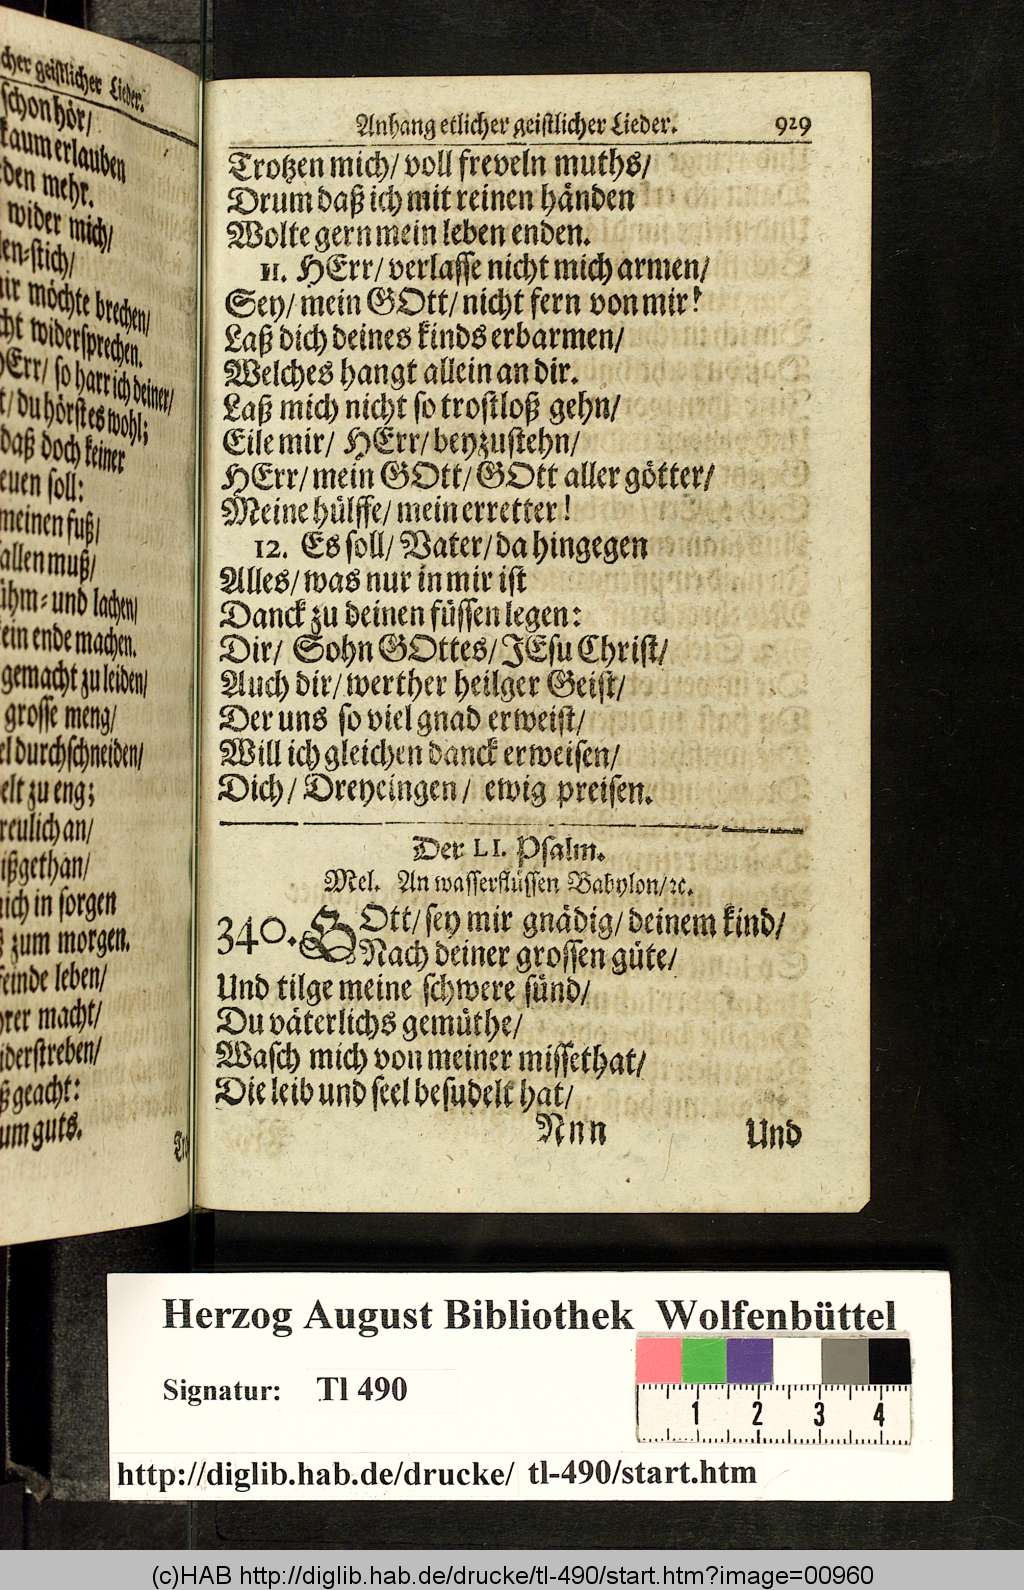 cher geistlicher Lieder.
schon hör/
kaum erlauben
den mehr.
wider mich/
en-stich/
ir möchte brechen/
cht widersprechen.
HErr/ so harr ich deiner/
t/ du hörst es wohl;
daß doch keiner
euen soll:
meinen fuß/
allen muß/
ühm- und lachen/
ein ende machen.
gemacht zu leiden/
grosse meng/
el durchschneiden/
elt zu eng;
reulich an/
ißgethan/
ich in sorgen
ß zum morgen.
feinde leben/
rer macht/
iderstreben/
ß geacht:
um guts.
Anhang etlicher geistlicher Lieder. 929
Trotzen mich/ voll freveln muths/
Drum daß ich mit reinen händen
Wolte gern mein leben enden.
11. HErr/ verlasse nicht mich armen/
Sey/ mein GOtt/ nicht fern von mir!
Laß dich deines kinds erbarmen/
Welches hangt allein an dir.
Laß mich nicht so trostloß gehn/
Eile mir/ HErr/ beyzustehn/
HErr/ mein GOtt/ GOtt aller götter/
Meine hülffe/ mein erretter!
12. Es soll/ Vater/ da hingegen
Alles/ was nur in mir ist
Danck zu deinen füssen legen:
Dir/ Sohn GOttes/ JEsu Christ/
Auch dir/ werther heilger Geist/
Der uns so viel gnad erweist/
Will ich gleichen danck erweisen/
Dich/ Dreyeingen/ ewig preisen.
Der LI. Psalm.
Mel. An wasserflüssen Babylon/ ꝛc.
340. GOtt/ sey mir gnädig/ deinem kind/
Nach deiner grossen güte/
Und tilge meine schwere sünd/
Du väterlichs gemüthe/
Wasch mich von meiner missethat/
Die leib und seel besudelt hat/
Nnn Und
Herzog August Bibliothek Wolfenbüttel
Signatur: Tl 490
1 2 3 4
http://diglib.hab.de/drucke/ tl-490/start.htm
(c)HAB http://diglib.hab.de/drucke/tl-490/start.htm?image=00960